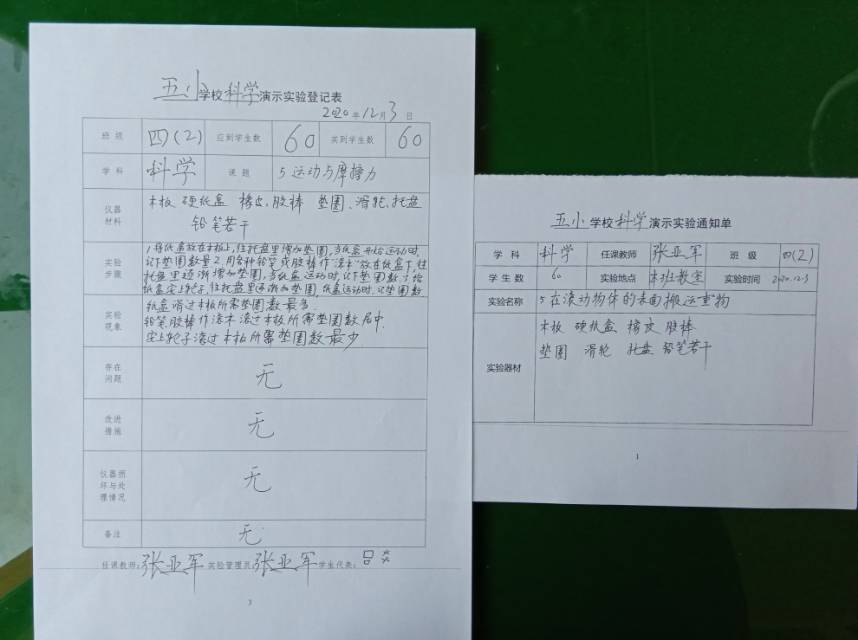 五小学校科学演示实验登记表
2020年12月3日
班级 四(2) 应到学生数 60 实到学生数 60
学科 科学 课题 5运动与摩擦力
仪器材料 木板 硬纸盒 橡皮、胶棒 垫圈、滑轮、托盘
铅笔若干
实验步骤 1.将纸盒放在木板上,往托盘里增加垫圈,当纸盒开始运动时,
记下垫圈数量2.用各种铅笔或胶棒作"滚木"放在纸盒下,往
托盘里逐渐增加垫圈,当纸盒运动时,记下垫圈数3.给
纸盒安上轮子,往托盘里逐渐加垫圈,纸盒运动时,记垫圈数
实验现象 纸盒滑过木板所需垫圈数最多.
铅笔胶棒作滚木滚过木板所需垫圈数居中.
安上轮子滚过木板所需垫圈数最少
存在问题 无
改进措施 无
仪器损坏与处理情况 无
备注 无
任课教师:张亚军 实验管理员:张亚军 学生代表:
3
五小学校科学演示实验通知单
学科 科学 任课教师 张亚军 班级 四(2)
学生数 60 实验地点 本班教室 实验时间 2020.12.3
实验名称 5在滚动物体的表面搬运重物
实验器材 木板 硬纸盒 橡皮 胶棒
垫圈 滑轮 托盘 铅笔若干
1